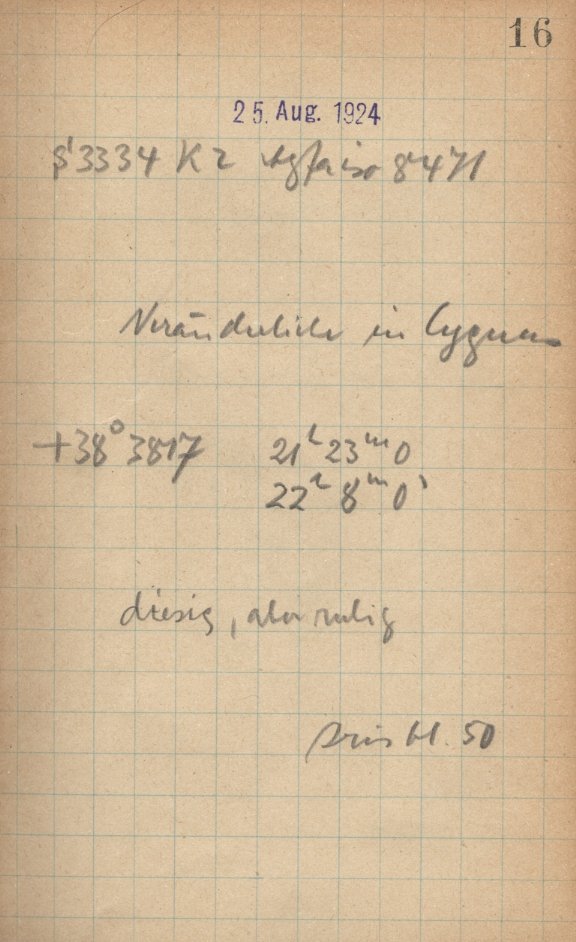 16
25. Aug. 1924
S 3334 K2 Agfa iso 8471
Veränderliche in Cygnus
+38° 3817 21h 23m 0
22h 8m 0
diesig, aber ruhig
50